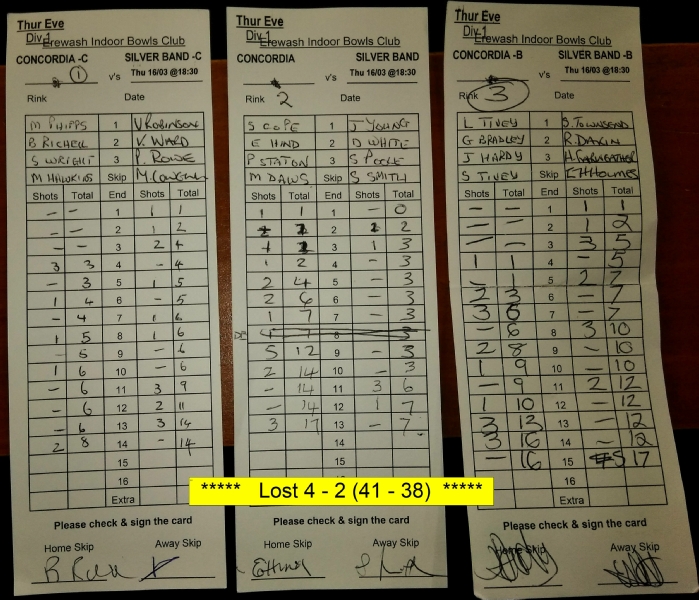 Thur Eve
Div 1
Erewash Indoor Bowls Club
CONCORDIA -C SILVER BAND -C
1 v's Thu 16/03 @18:30
Rink Date
M PHIPPS 1 V ROBINSON
B RICHELL 2 V. WARD
S WRIGHT 3 P. ROWE
M HAWKINS Skip
Shots Total End Shots Total
- - 1 1 1
- - 2 1 2
- - 3 2 4
3 3 4 - 4
- 3 5 1 5
1 4 6 - 5
- 4 7 1 6
1 5 8 1 6
- 5 9 - 6
1 6 10 - 6
- 6 11 3 9
- 6 12 2 11
- 6 13 3 14
2 8 14 - 14
15
16
Extra
Please check & sign the card
Home Skip Away Skip
Thur Eve
Div 1
Erewash Indoor Bowls Club
CONCORDIA SILVER BAND
v's Thu 16/03 @18:30
Rink 2 Date
S COPE 1 J YOUNG
E HIND 2 D WHITE
P STATON 3 S POOLE
M DAWS Skip S SMITH
Shots Total End Shots Total
1 1 1 - 0
2 2 2
3 1 3
1 2 4 - 3
2 4 5 - 3
2 6 6 - 3
1 7 7 - 3
8 3
5 12 9 - 3
2 14 10 - 3
- 14 11 3 6
- 14 12 1 7
3 17 13 - 7
14
15
16
Please check & sign the card
Home Skip Away Skip
Thur Eve
Div 1
Erewash Indoor Bowls Club
CONCORDIA -B SILVER BAND -B
v's Thu 16/03 @18:30
Rink 3 Date
L TIVEY 1 S. TOWNSEND
G BRADLEY 2 R. DAKIN
J HARDY 3
S TIVEY Skip HOLMES
Shots Total End Shots Total
- - 1 1 1
- - 2 1 2
- - 3 3 5
1 1 4 - 5
- 1 5 2 7
2 3 6 - 7
3 6 7 - 7
- 6 8 3 10
2 8 9 - 10
1 9 10 - 10
- 9 11 2 12
1 10 12 - 12
3 13 13 - 12
3 16 14 - 12
- 16 15 5 17
16
Extra
Please check & sign the card
Home Skip Away Skip
***** Lost 4 - 2 (41 - 38) *****